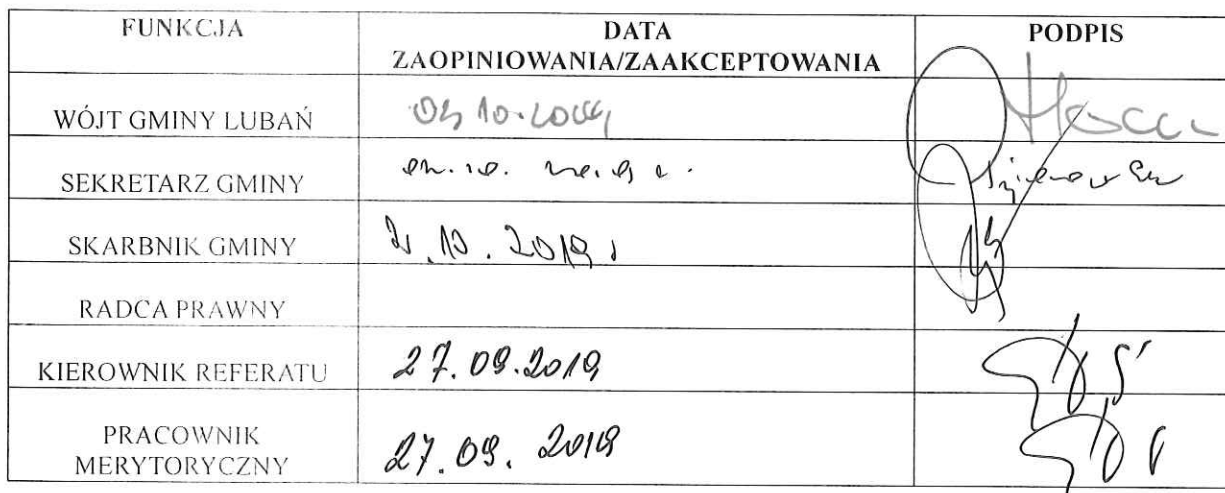 FUNKCJA
DATA
ZAOPINIOWANIA/ZAAKCEPTOWANIA
PODPIS
WÓJT GMINY LUBAŃ
SEKRETARZ GMINY
SKARBNIK GMINY
2.10.2019
RADCA PRAWNY
KIEROWNIK REFERATU
27.09.2019
PRACOWNIK
MERYTORYCZNY
27.09.2019